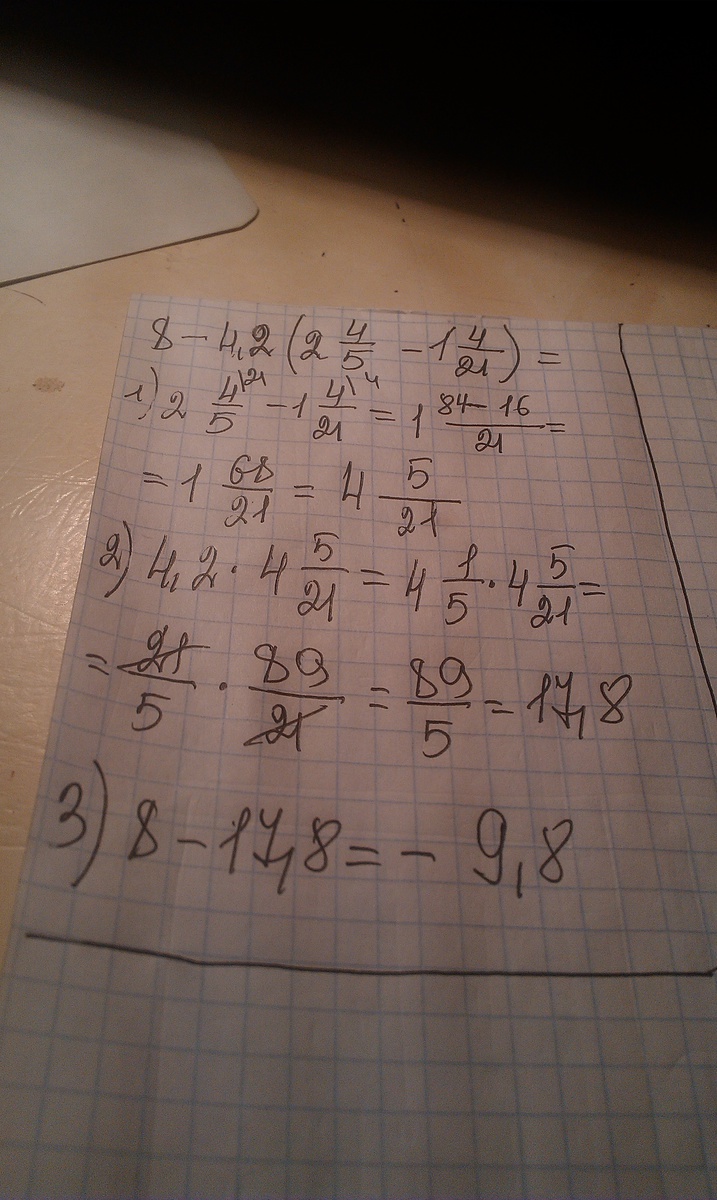 8 - 4,2 (2 4/5 - 1 4/21) =
1) 2 4/5 \21 - 1 4/21 \4 = 1 84-16/21 =
= 1 68/21 = 4 5/21
2) 4,2 · 4 5/21 = 4 1/5 · 4 5/21 =
= 21/5 · 89/21 = 89/5 = 17,8
3) 8 - 17,8 = - 9,8